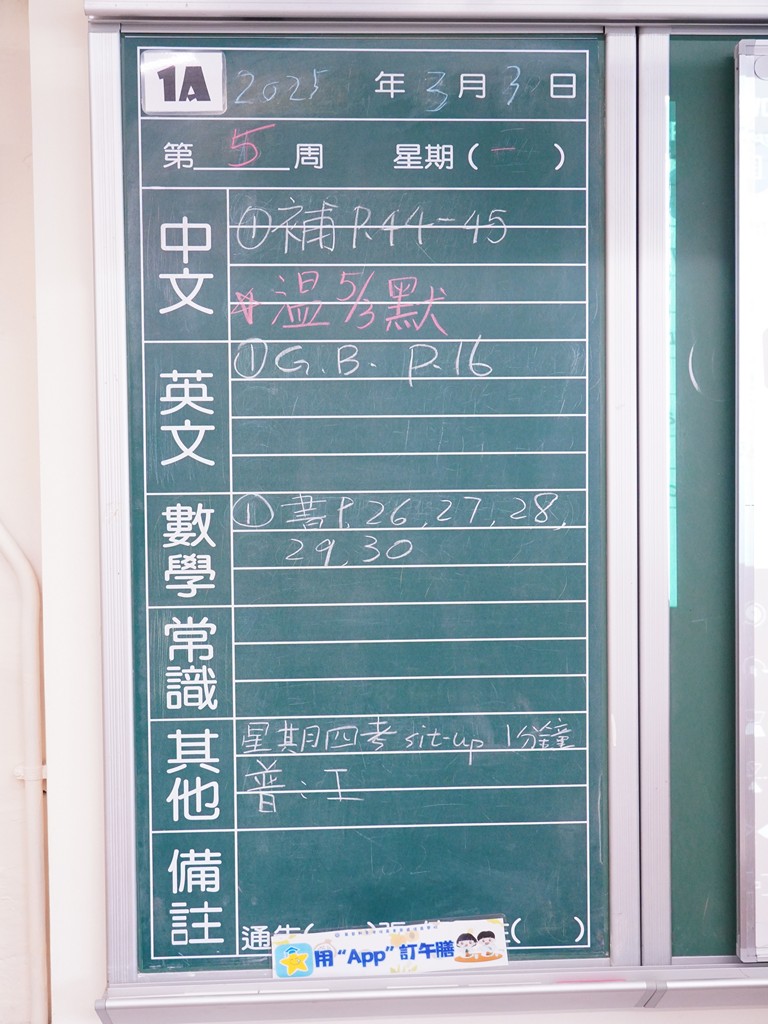 1A 2025 年 3 月 3 日
第 5 周 星期 ( 一 )
中文
① 補 P.44-45
☆ 溫 5/3 默
英文
① G.B. P.16
數學
① 書 P.26, 27, 28,
29, 30
常識
其他
星期四考 sit-up 1分鐘
普:工
備註
通告( )
( )
用 "App" 訂午膳